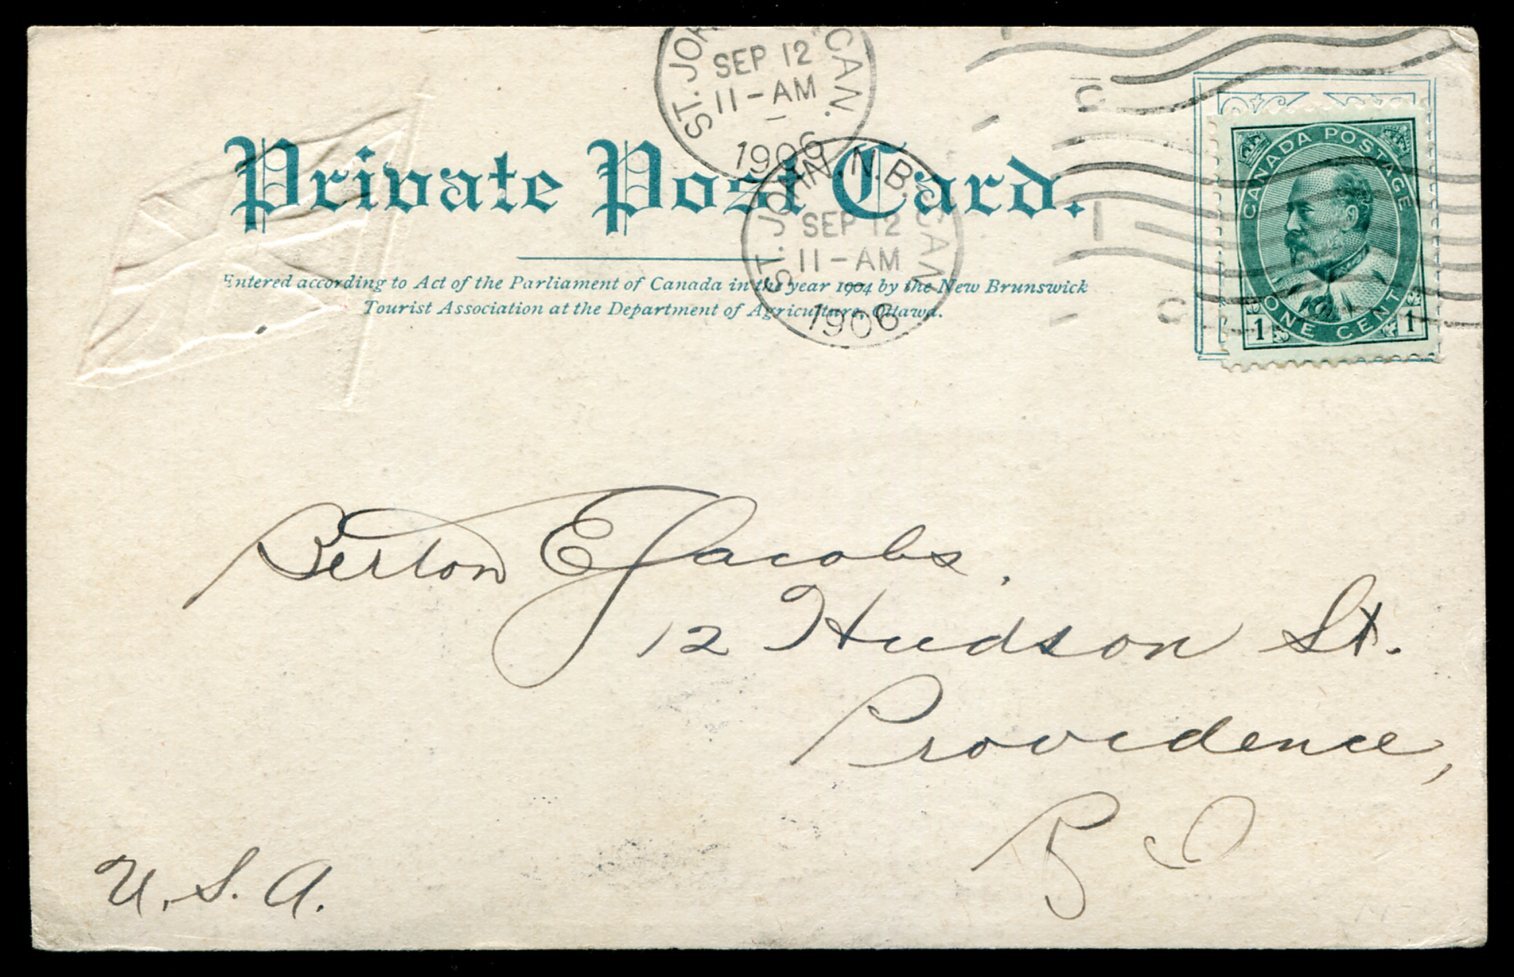 ST. JOHN N.B. CAN.
SEP 12
11-AM
1906
ST. JOHN N.B. CAN.
SEP 12
11-AM
1906
CANADA POSTAGE
1 ONE CENT 1
Private Post Card.
Entered according to Act of the Parliament of Canada in the year 1904 by the New Brunswick
Tourist Association at the Department of Agriculture, Ottawa.
Berton E Jacobs.
12 Hudson St.
Providence,
R I
U.S.A.